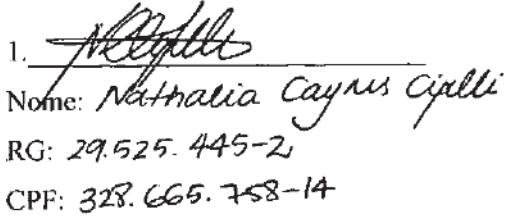 1.
Nome: Nathalia Cayres Cipelli
RG: 29.525.445-2
CPF: 328.665.758-14